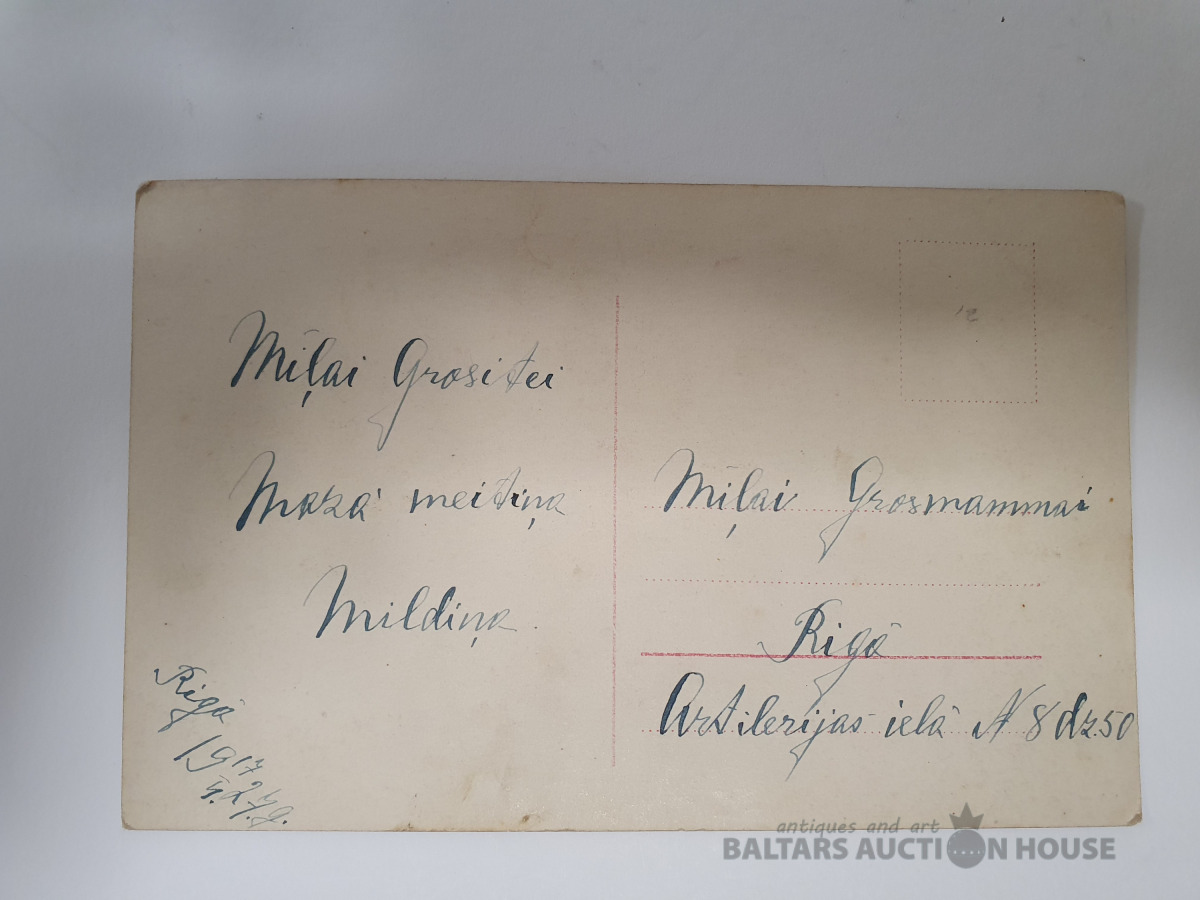 Mīļai Grositei
Mazā meitiņa
Mildiņa.
Rīgā
19 17/5. 27.g.
Mīļai Grosmammai
Rīgā
Artilerijas ielā N 8 dz. 50
antiques and art
BALTARS AUCTION HOUSE